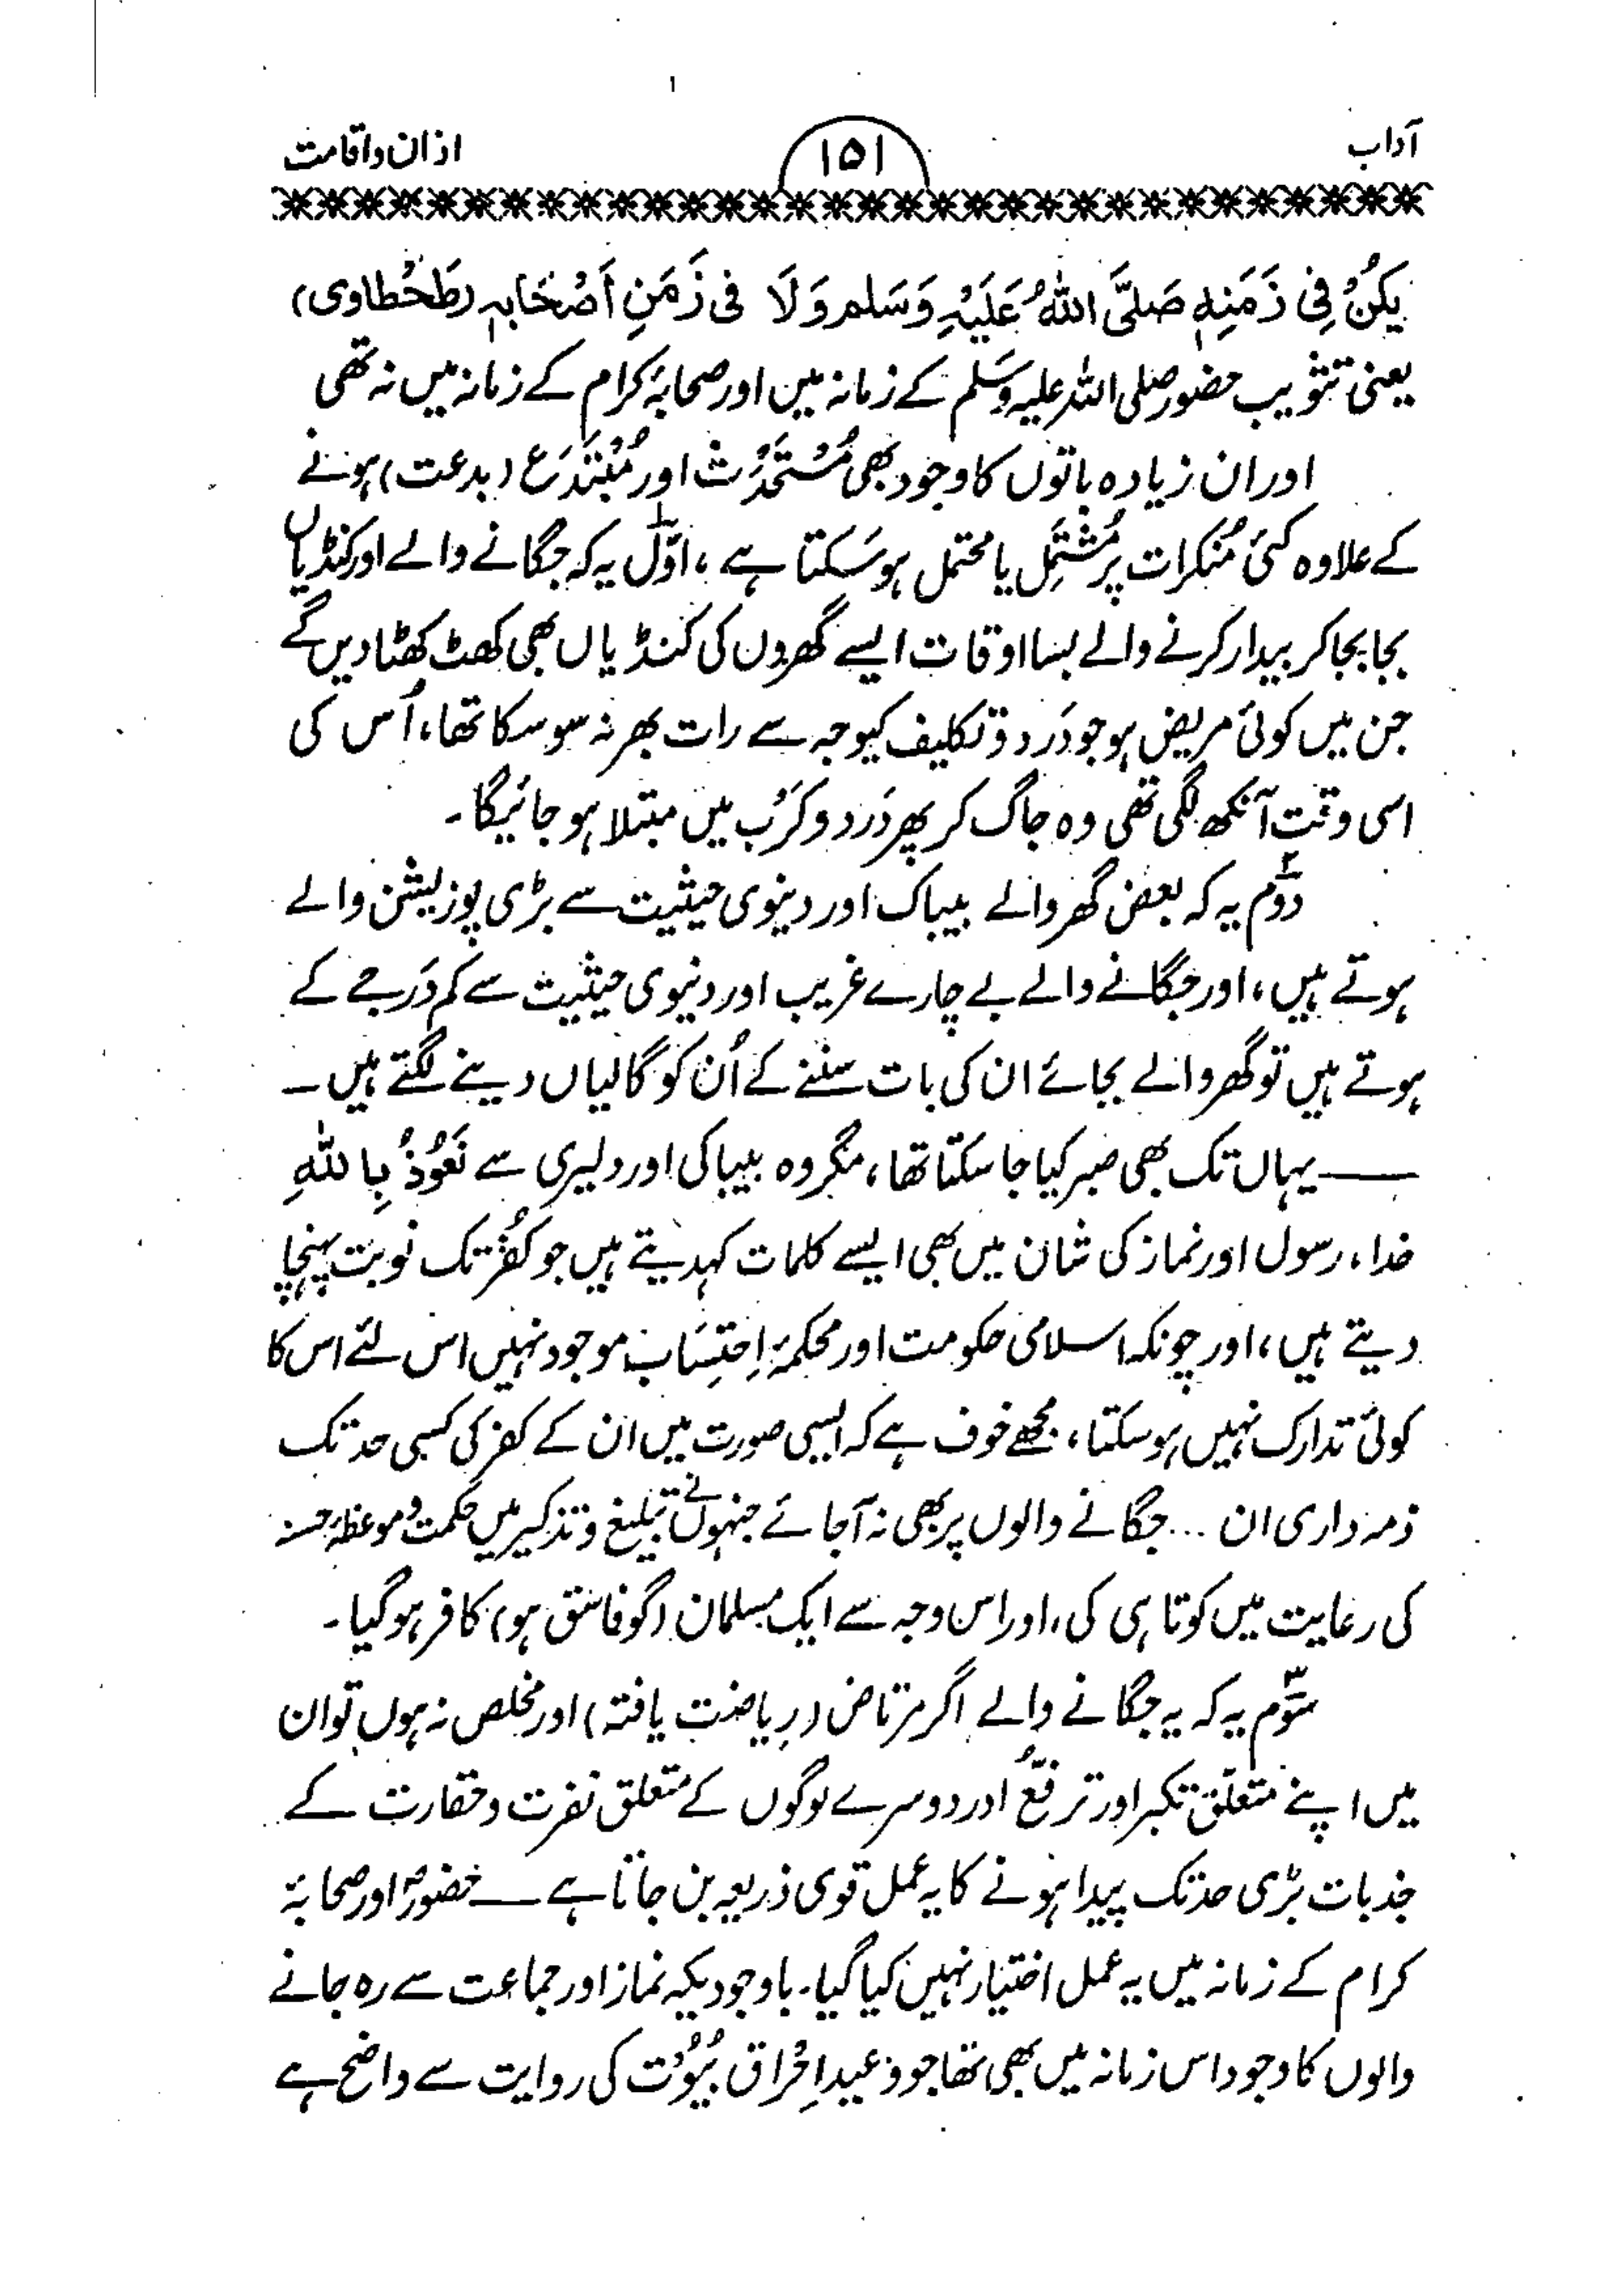 آداب ۱۵۱ اذان واقامت
یَکُنْ فِی زَمَنِہٖ صَلَّی اللّٰہُ عَلَیْہِ وَسَلم وَلَا فی زَمَنِ اَصْحَابِہٖ (طَحْطاوی)
یعنی تثویب حضور صلی اللہ علیہ وسَلم کے زمانہ میں اور صحابۂ کرام کے زمانہ میں نہ تھی
اور ان زیادہ باتوں کا وجود بھی مُسْتَحْدَث اور مُبْتَدَع (بدعت) ہونے
کے علاوہ کئی مُنکرات پر مُشْتَمِل یا محتمل ہو سَکتا ہے، اوّل یہ کہ جگانے والے اور کنڈیاں
بجا بجا کر بیدار کرنے والے بسا اوقات ایسے گھروں کی کنڈیاں بھی کھٹ کھٹا دیں گے
جن میں کوئی مریض ہو جو دَرد و تکلیف کیوجہ سے رات بھر نہ سو سکا تھا، اُس کی
اسی وقت آنکھ لگی تھی وہ جاگ کر پھر دَرد و کَرْب میں مبتلا ہو جائیگا۔
دوّم یہ کہ بعض گھر والے بیباک اور دینوی حیثیت سے بڑی پوزیشن والے
ہوتے ہیں، اور جگانے والے بے چارے غریب اور دنیوی حیثیت سے کم دَرجے کے
ہوتے ہیں تو گھر والے بجائے ان کی بات سننے کے اُن کو گالیاں دینے لگتے ہیں ۔
—— یہاں تک بھی صبر کیا جا سکتا تھا، مگر وہ بیباکی اور دلیری سے نَعُوْذُ بِاللّٰہِ
خدا، رسول اور نماز کی شان میں بھی ایسے کلمات کہدیتے ہیں جو کُفْر تک نوبت پہنچا
دیتے ہیں، اور چونکہ اسلامی حکومت اور محکمۂ اِحتِسَاب موجود نہیں اس لئے اس کا
کوئی تدارک نہیں ہو سکتا، مجھے خوف ہے کہ ایسی صورت میں ان کے کفر کی کسی حد تک
ذمہ داری ان ... جگانے والوں پر بھی نہ آجائے جنہوں نے تبلیغ و تذکیر میں حکمت و موعظۂ حسنہ
کی رعایت میں کوتاہی کی، اور اس وجہ سے ایک مسلمان (گو فاسق ہو) کافر ہو گیا۔
سوّم یہ کہ یہ جگانے والے اگر مرتاض (رِیاضت یافتہ) اور مخلص نہ ہوں تو ان
میں اپنے متعلّق تکبر اور ترفّعُ اور دوسرے لوگوں کے متعلق نفرت و حقارت کے
جذبات بڑی حد تک پیدا ہونے کا یہ عمل قوی ذریعہ بن جاتا ہے — حضورؐ اور صحابۂ
کرام کے زمانہ میں یہ عمل اختیار نہیں کیا گیا۔ باوجودیکہ نماز اور جماعت سے رہ جانے
والوں کا وجود اس زمانہ میں بھی تھا جو وعیدِ اِحْراق بُیُوْت کی روایت سے واضح ہے